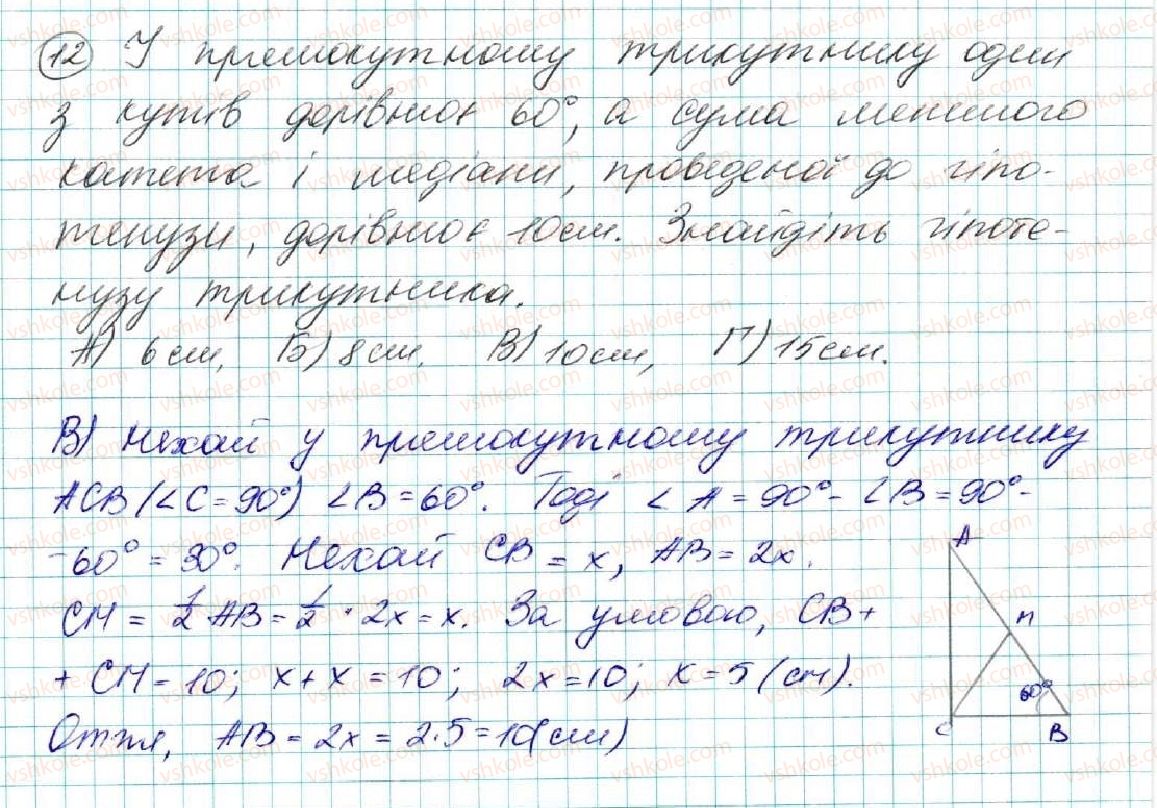 12 У прямокутному трикутнику один
з кутів дорівнює 60°, а сума меншого
катета і медіани, проведеної до гіпо-
тенузи, дорівнює 10см. Знайдіть гіпоте-
нузу трикутника.
А) 6см, Б) 8см, В) 10см, Г) 15см.
В) Нехай у прямокутному трикутнику
ACB (∠C = 90°) ∠B = 60°. Тоді ∠A = 90° - ∠B = 90° -
- 60° = 30°. Нехай CB = x, AB = 2x.
CM = 1/2 AB = 1/2 · 2x = x. За умовою, CB +
+ CM = 10; x + x = 10; 2x = 10; x = 5 (см).
Отже, AB = 2x = 2·5 = 10(см)
A
M
60°
C
B
vshkole.com